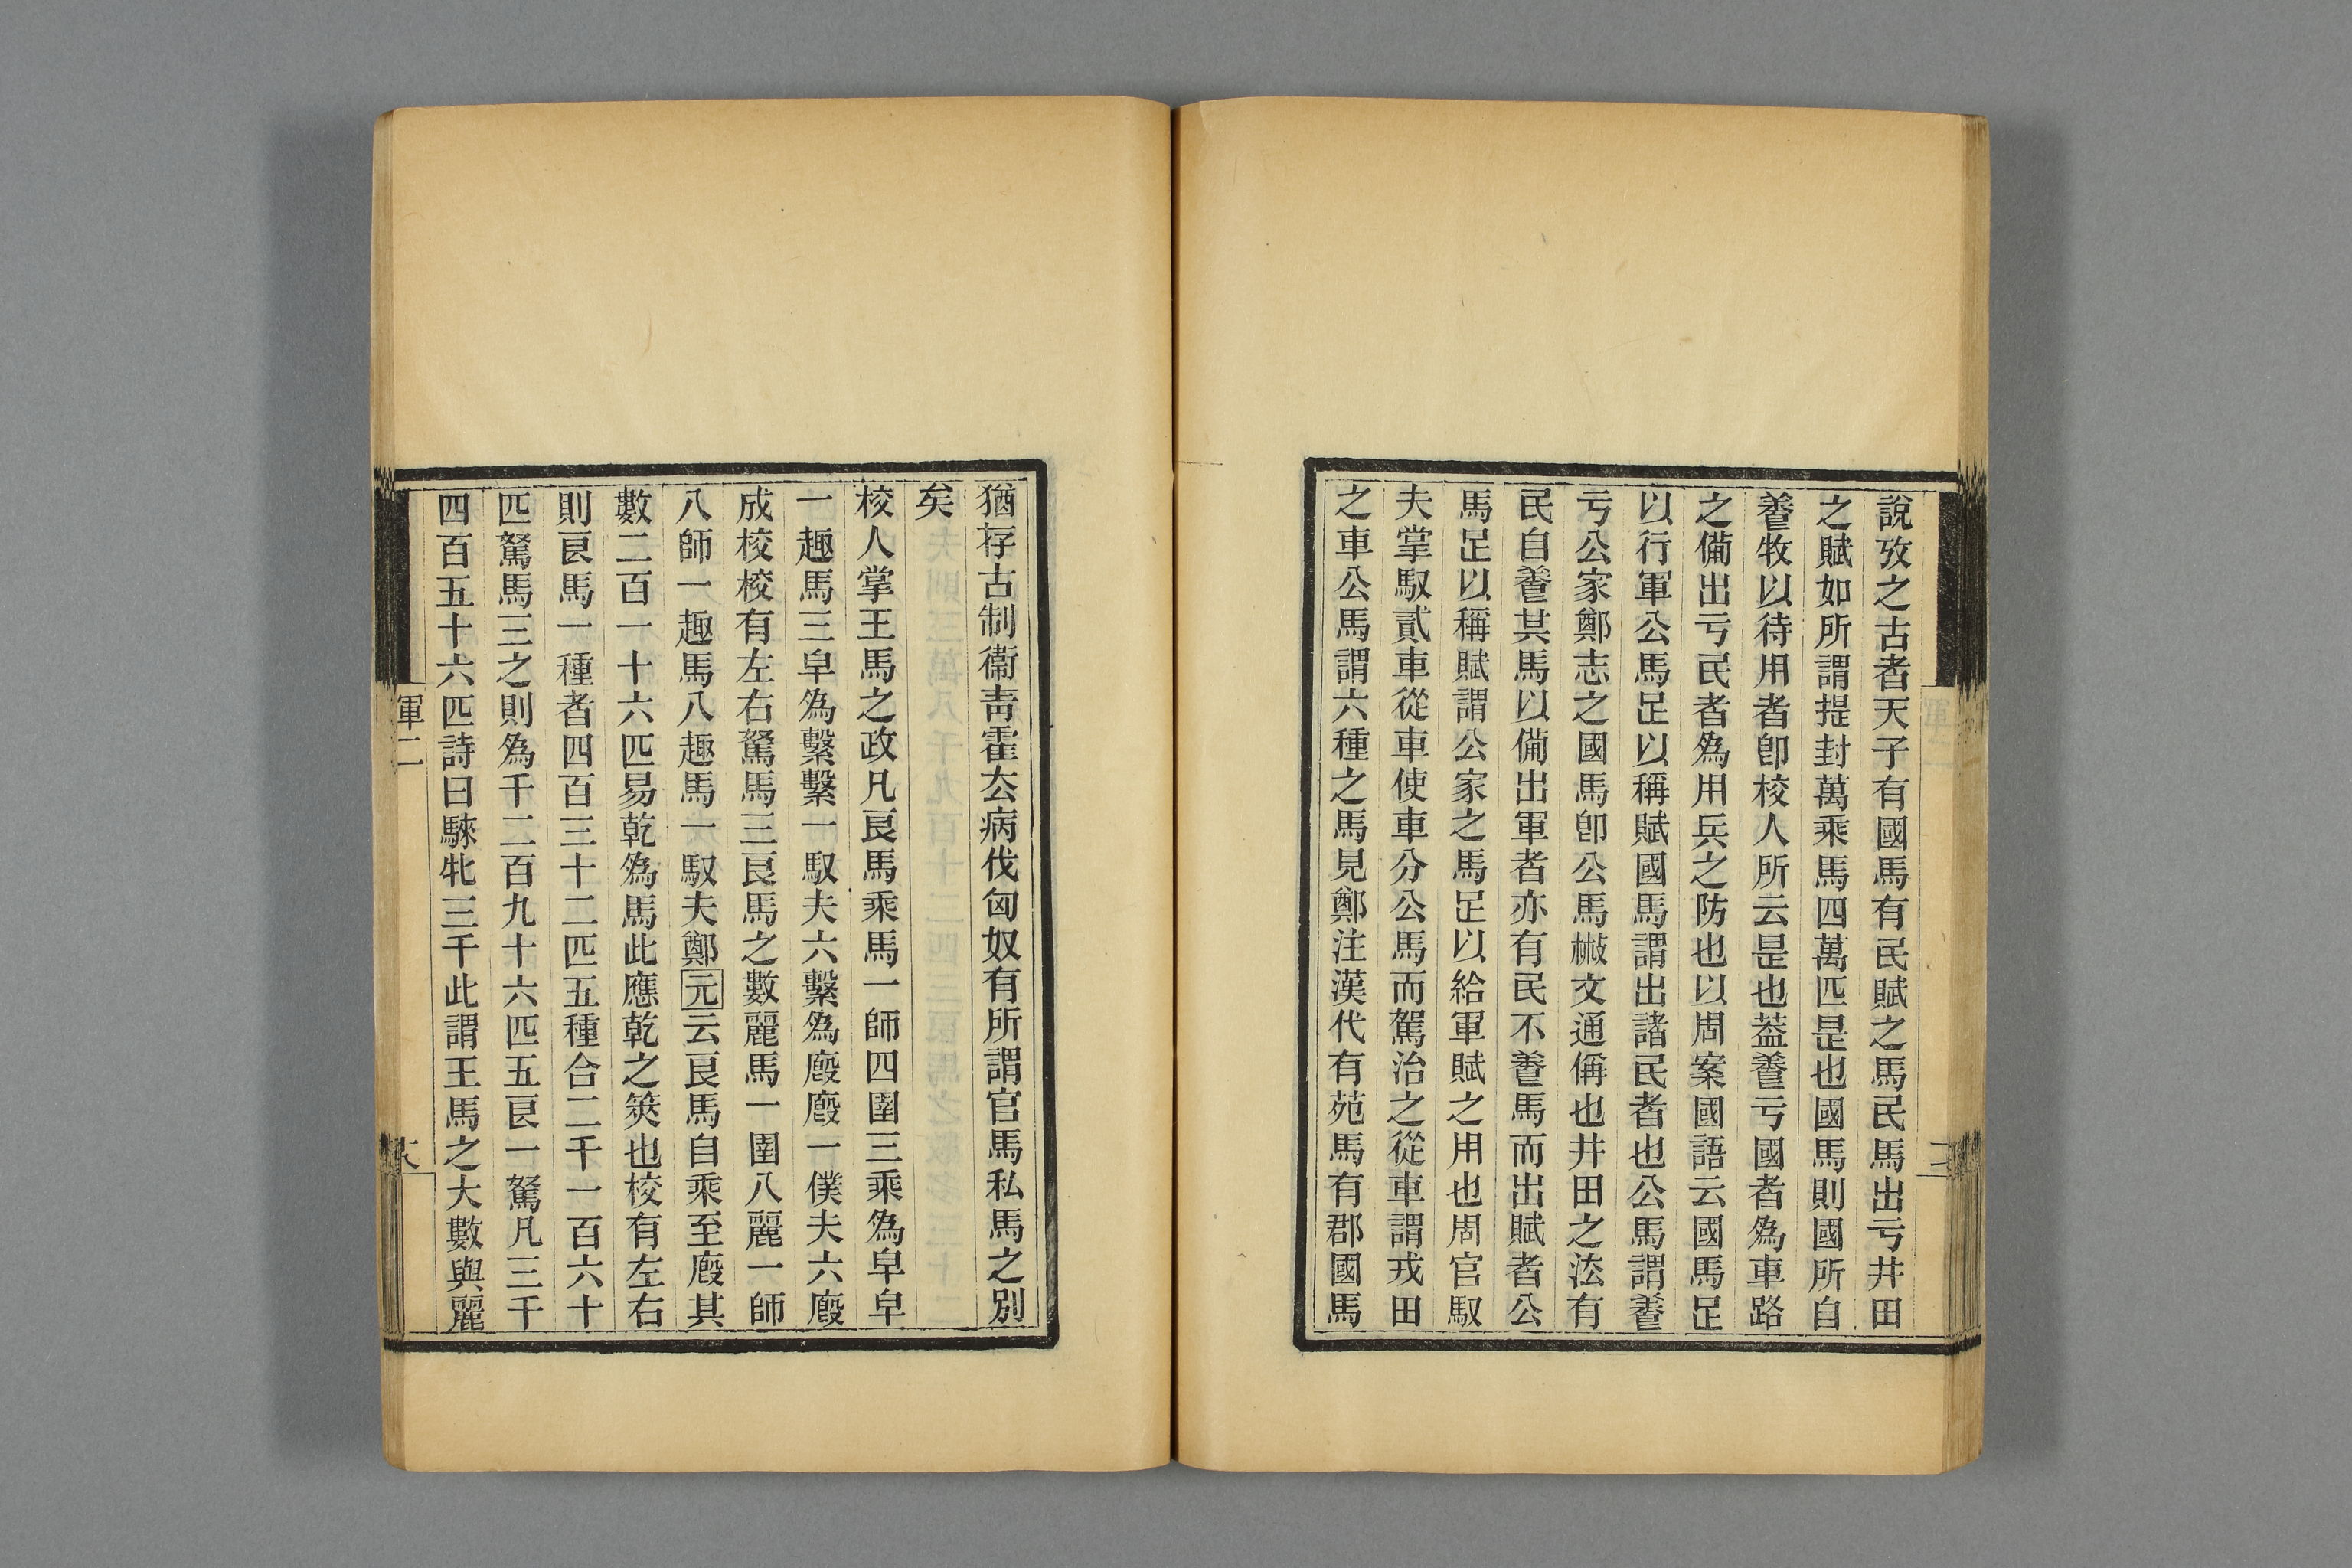 說攷之古者天子有國馬有民賦之馬民馬出亏井田
之賦如所謂提封萬乘馬四萬匹是也國馬則國所自
養牧以待用者卽校人所云是也葢養亏國者爲車路
之備出亏民者爲用兵之防也以周案國語云國馬足
以行軍公馬足以稱賦國馬謂出諸民者也公馬謂養
亏公家鄭志之國馬卽公馬散文通偁也井田之法有
民自養其馬以備出軍者亦有民不養馬而出賦者公
馬足以稱賦謂公家之馬足以給軍賦之用也周官馭
夫掌馭貳車從車使車分公馬而駕治之從車謂戎田
之車公馬謂六種之馬見鄭注漢代有苑馬有郡國馬
猶存古制衞靑霍去病伐匈奴有所謂官馬私馬之別
矣
校人掌王馬之政凡良馬乘馬一師四圉三乘爲皁皁
一趣馬三皁爲繫繫一馭夫六繫爲廏廏一僕夫六廏
成校校有左右駑馬三良馬之數麗馬一圉八麗一師
八師一趣馬八趣馬一馭夫鄭元云良馬自乘至廏其
數二百一十六匹易乾爲馬此應乾之筴也校有左右
則良馬一種者四百三十二匹五種合二千一百六十
匹駑馬三之則爲千二百九十六匹五良一駑凡三千
四百五十六匹詩曰騋牝三千此謂王馬之大數與麗
軍二